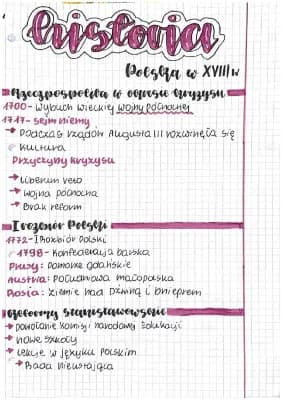 historia
Polska w XVIII w
Rzeczpospolita w okresie kryzysu
1700 - Wybuch wielkiej wojny północnej
1717 - sejm niemy
→ Podczas rządów Augusta III rozwinęła się
kultura
Przyczyny kryzysu
→ Liberum veto
→ wojna północna
→ Brak reform
I rozbiór Polski
1772 - I Rozbiór Polski
1798 - Konfederacja barska
Prusy: Pomorze gdańskie
Austria: Południowa małopolska
Rosja: ziemie nad Dźwiną i Dnieprem
Reformy stanisławowskie
→ powołanie Komisji Narodowej Edukacji
→ nowe szkoły
→ lekcje w języku polskim
→ Rada nieustająca